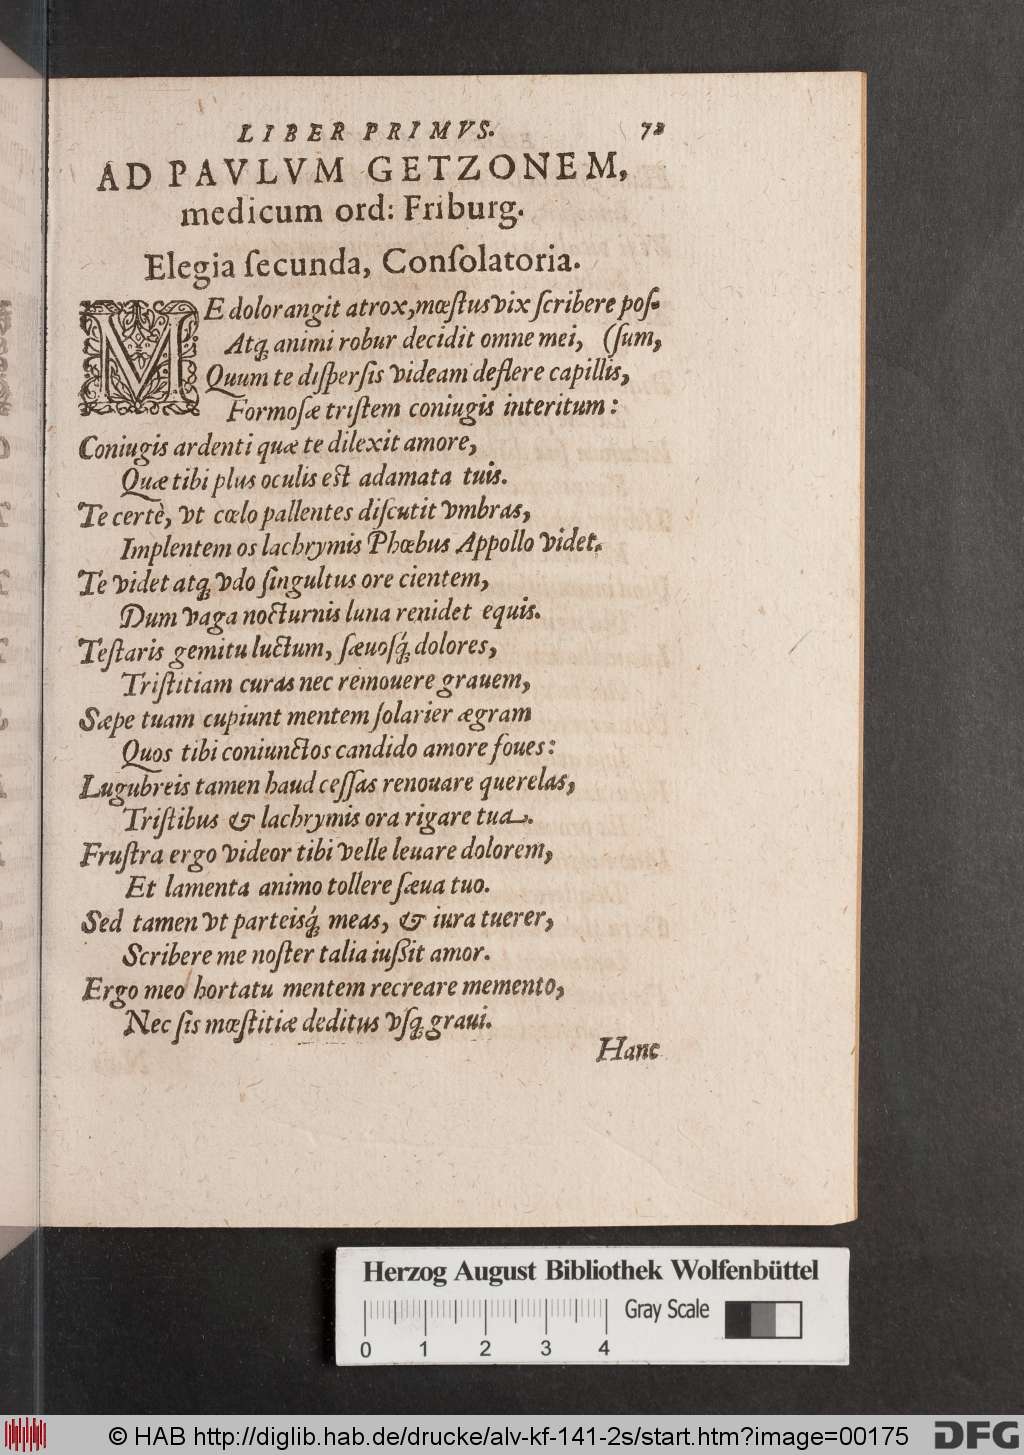 LIBER PRIMVS. 73
AD PAVLVM GETZONEM,
medicum ord: Friburg.
Elegia ſecunda, Conſolatoria.
ME dolor angit atrox, mœſtus vix ſcribere poſ-
Atq; animi robur decidit omne mei, (ſum,
Quum te diſperſis videam deflere capillis,
Formoſæ triſtem coniugis interitum:
Coniugis ardenti quæ te dilexit amore,
Quæ tibi plus oculis eſt adamata tuis.
Te certè, vt cœlo pallentes diſcutit vmbras,
Implentem os lachrymis Phœbus Appollo videt.
Te videt atq; vdo ſingultus ore cientem,
Dum vaga nocturnis luna renidet equis.
Teſtaris gemitu luctum, ſæuoſq́; dolores,
Triſtitiam curas nec remouere grauem,
Sæpe tuam cupiunt mentem ſolarier ægram
Quos tibi coniunctos candido amore foues:
Lugubreis tamen haud ceſſas renouare querelas,
Triſtibus & lachrymis ora rigare tua.
Fruſtra ergo videor tibi velle leuare dolorem,
Et lamenta animo tollere ſæua tuo.
Sed tamen vt parteisq́; meas, & iura tuerer,
Scribere me noſter talia iuſsit amor.
Ergo meo hortatu mentem recreare memento,
Nec ſis mœſtitiæ deditus vſq; graui.
Hanc
Herzog August Bibliothek Wolfenbüttel
Gray Scale
0 1 2 3 4
© HAB http://diglib.hab.de/drucke/alv-kf-141-2s/start.htm?image=00175
DFG